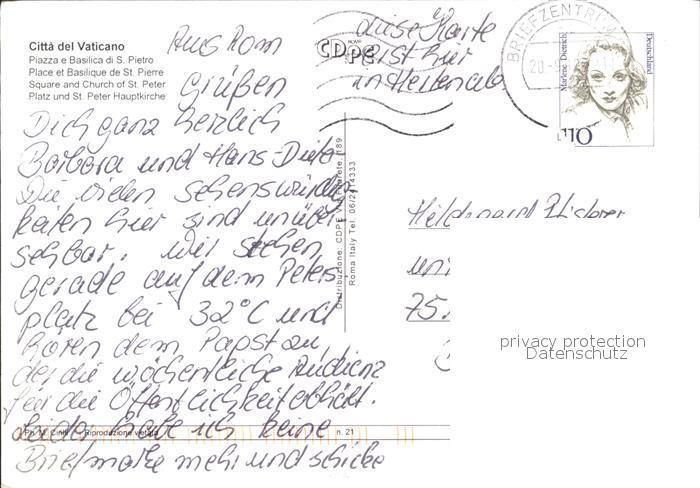 Città del Vaticano
Piazza e Basilica di S. Pietro
Place et Basilique de St. Pierre
Square and Church of St. Peter
Platz und St. Peter Hauptkirche
Aus Rom
Grüßen
Dich ganz herzlich
Barbara und Hans-Dieter
Die vielen Sehenswürdig
keiten hier sind unüber
sehbar. Wir stehen
gerade auf dem Peters
platz bei 32°C und
hören dem Papst zu,
der die wöchentliche Audienz
für die Öffentlichkeit abhält.
Leider habe ich keine
Briefmarke mehr und schicke
diese Karte
erst hier
in
CDPE
ROMA
BRIEFZENTRUM
Marlene Dietrich
Deutschland
110
Distribuzione: CDPE Via 189
Roma Italy Tel. 06/
Riproduzione vietata
n. 21
Hildegard
75
privacy protection
Datenschutz